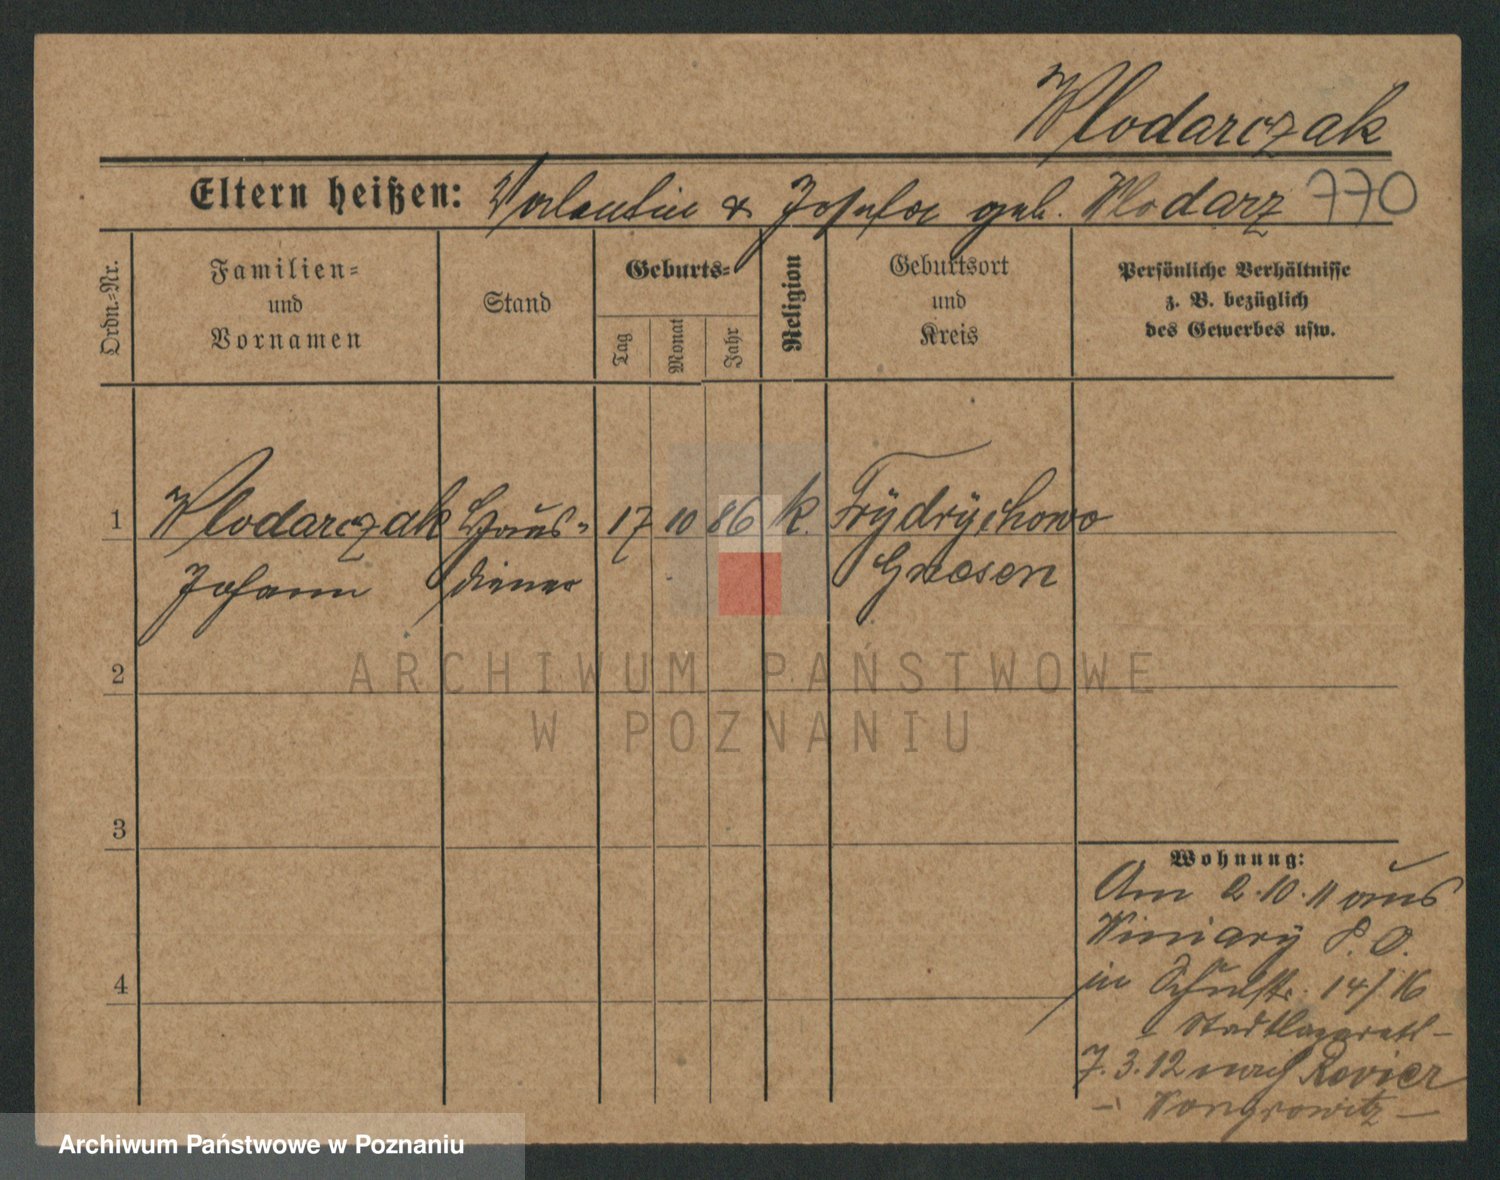 Wlodarczak
Eltern heißen: Valentin & Josefa geb. Wlodarz 770
Ordn.-Nr.
Familien-
und
Vornamen
Stand
Geburts-
Tag
Monat
Jahr
Religion
Geburtsort
und
Kreis
Persönliche Verhältnisse
z. B. bezüglich
des Gewerbes usw.
1 Wlodarczak Haus- 17 10 86 k. Frydrychowo
Johann diener Gnesen
2
3
4
Wohnung:
Am 2.10.11 aus
Winiary P. O.
in Schulstr. 14/16
Stadtlazareth-
7.3.12 nach Revier
- Wongrowitz -
ARCHIWUM PAŃSTWOWE
W POZNANIU
Archiwum Państwowe w Poznaniu